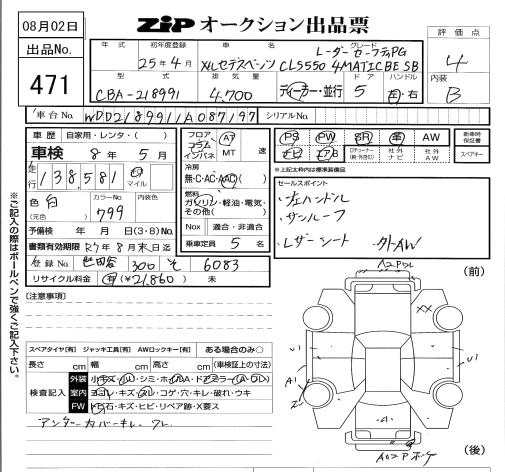 08月02日
ZiP オークション出品票
出品No.
471
年式 初年度登録 車名 グレード 評価点
25年4月 メルセデスベンツ レーダーセーフティPG
CLS550 4MATIC BE SB
4
型式 排気量 ドア ハンドル 内装
CBA-218991 4,700 ディーラー・並行 5 左・右 B
車台No. WDD2189911A087197 シリアルNo.
車歴 自家用・レンタ・( )
車検 8年5月
走行 138,581 km マイル
色 白 カラーNo. 799 内装色
(元色)
予備検 年 月 日(3・8)No.
書類有効期限 27年8月末日迄
登録No. 世田谷 300 そ 6083
リサイクル料金 有(¥21,860) 未
フロア コラム インパネ AT MT 速
冷房
無・C・AC・AAC
燃料
ガソリン・軽油・電気・
その他( )
Nox 適合・非適合
乗車定員 5 名
PS PW SR 革 AW 新車時保証書
ナビ エアB ロクチューナー(純・外含む) 社外ナビ 社外AW スペアキー
※上記太枠内は標準装備品
セールスポイント
・左ハンドル
・サンルーフ
・レザーシート ・外AW
※ご記入の際はボールペンで強くご記入下さい。
[注意事項]
スペアタイヤ[有] ジャッキ工具[有] AWロックキー[有] ある場合のみ○
長さ cm 幅 cm 高さ cm (車検証上の寸法)
検査記入
外装 小キズ・凹・シミ・ホイルA・ドアミラー(A・ワレ)
室内 ヨゴレ・キズ・スレ・コゲ・穴・キレ・破れ・ウキ
FW トビ石・キズ・ヒビ・リペア跡・X要ス
アンダーカバーキレ、ワレ
(前)
XX
U1
U1
A1
A
(後)